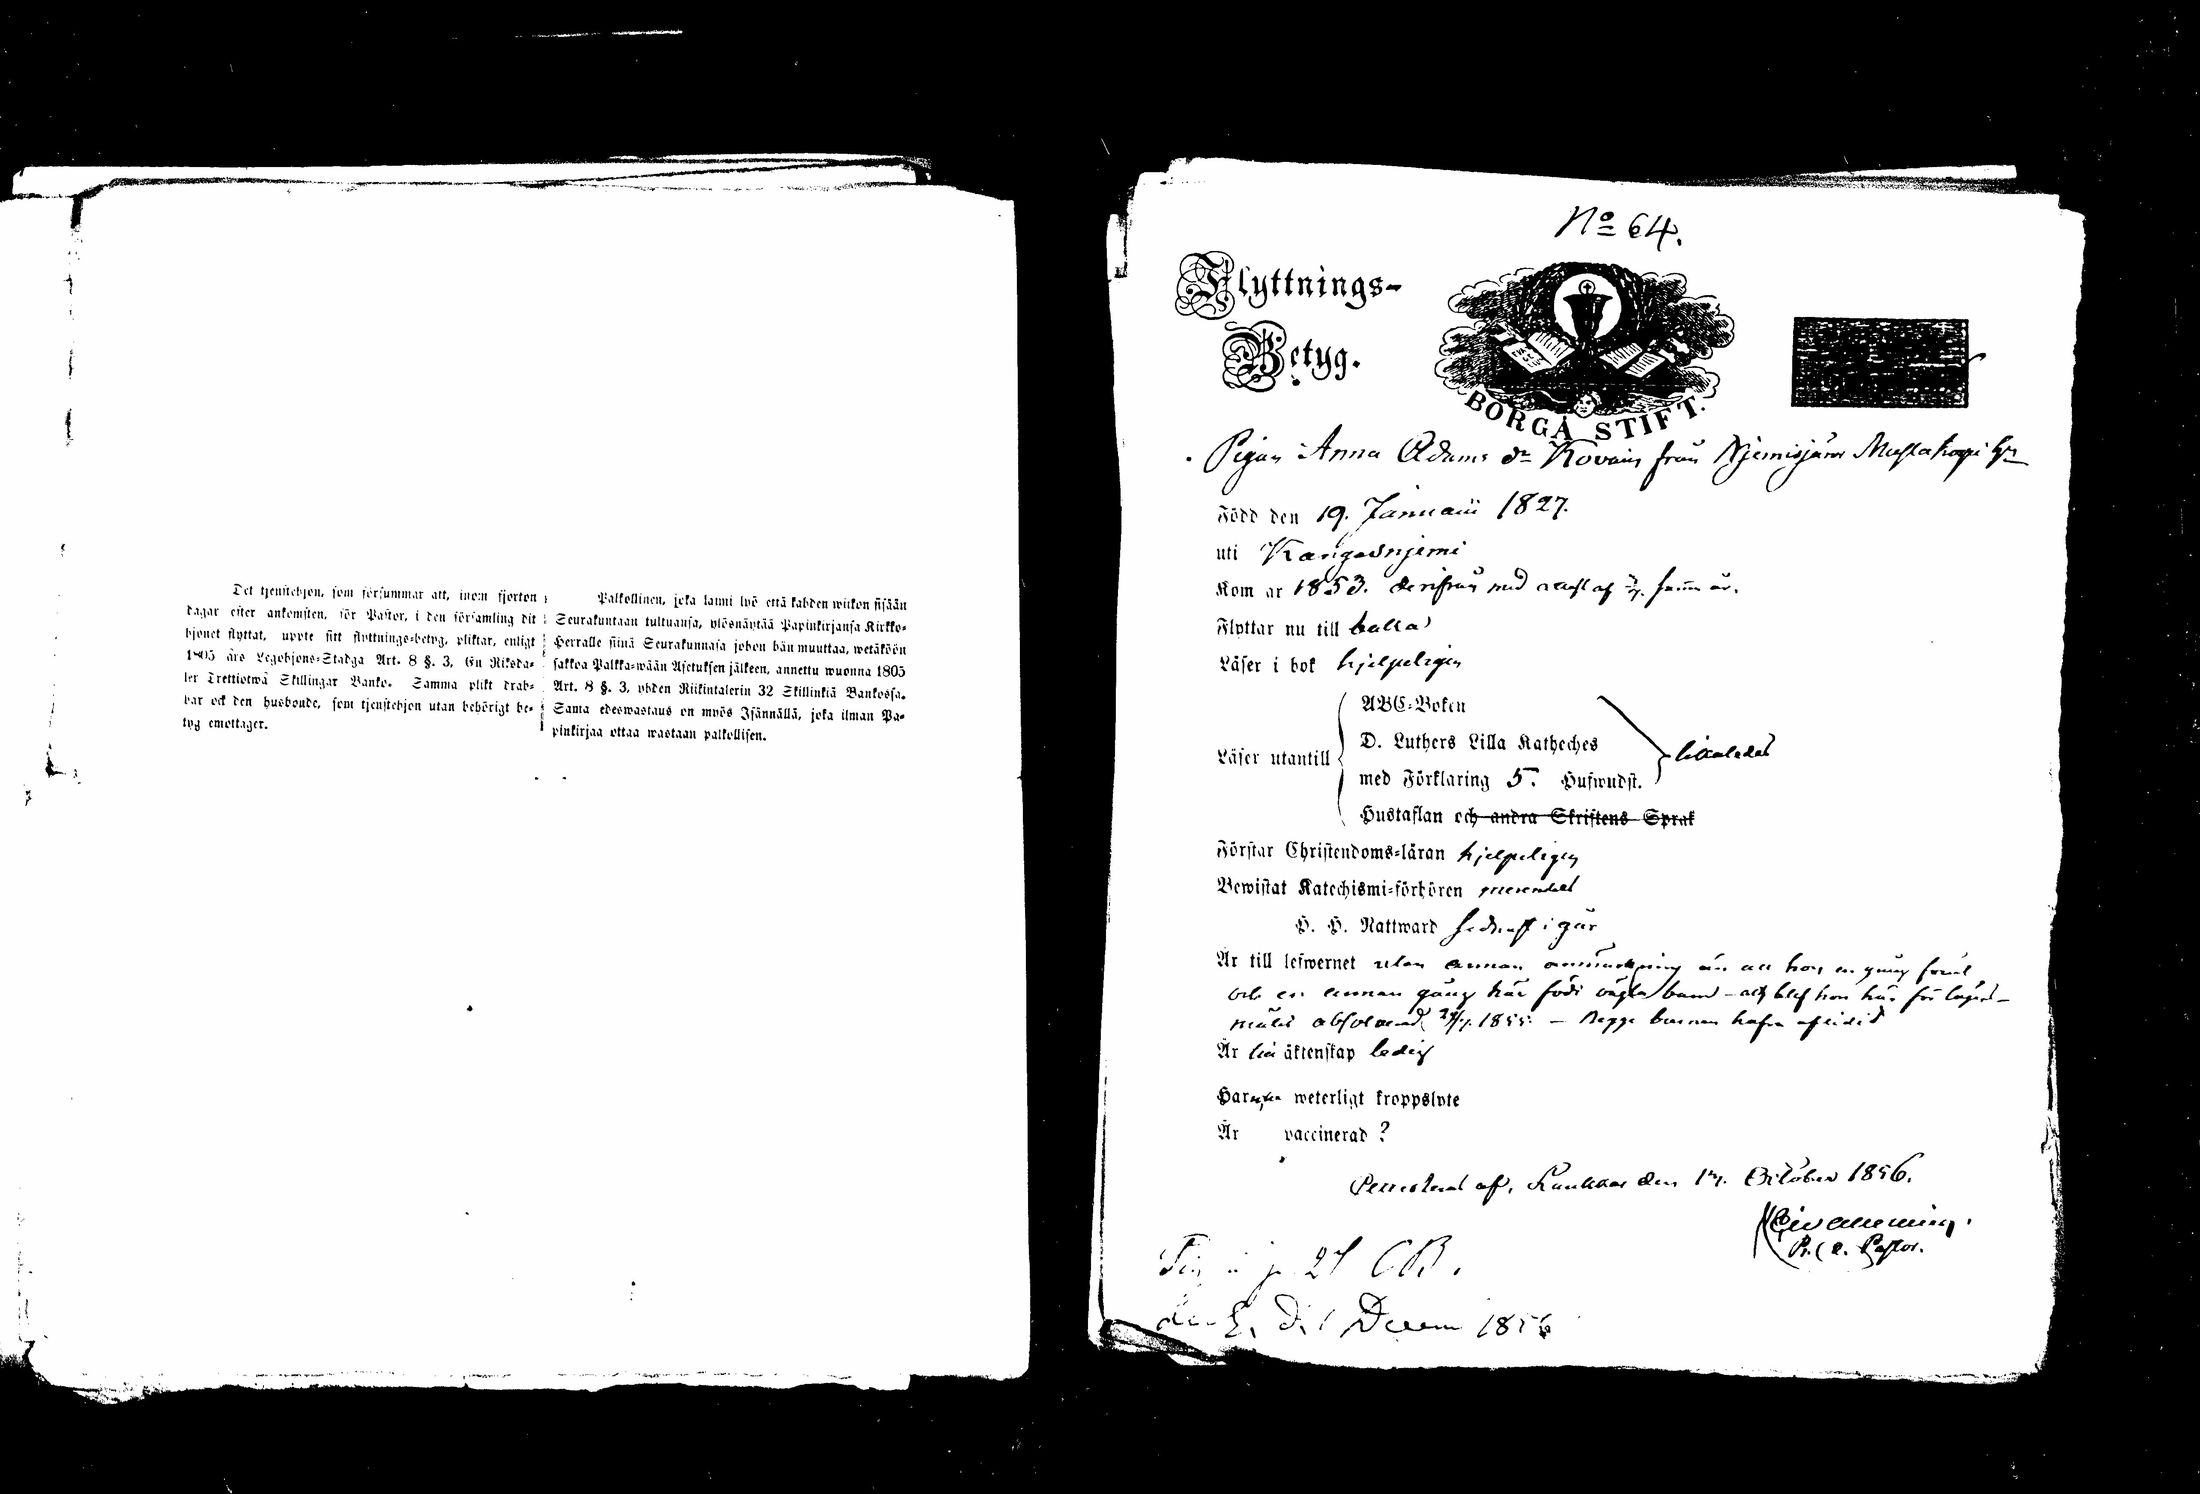 Det tjenstehjon, som försummar att, inom fjorton
dagar efter ankomsten, för Pastor, i den församling dit
hjonet flyttat, uppte sitt flyttnings-betyg, pliktar, enligt
1805 års Legohjons-Stadga Art. 8 §. 3, En Riksda-
ler Trettiotwå Skillingar Banko. Samma plikt drab-
bar ock den husbonde, som tjenstehjon utan behörigt be-
tyg emottager.
Palkollinen, joka laimi lyö että kahden wiikon sisään
Seurakuntaan tultuansa, ylösnäytää Papinkirjansa Kirkko-
Herralle siinä Seurakunnasa johon hän muuttaa, wetäköön
sakkoa Palkka-wään Asetuksen jälkeen, annettu wuonna 1805
Art. 8 §. 3, yhden Riikintalerin 32 Skillinkiä Bankossa.
Sama edeswastaus on myös Isännällä, joka ilman Pa-
pinkirjaa ottaa wastaan palkollisen.
No 64.
Flyttnings-
Betyg.
BORGÅ STIFT.
Pigan Anna Adams dr Kovain från Njemisjärvi Mustakorpi
Född den 19. Januarii 1827.
uti Kangasnjemi
Kom år 1853. derifrån med attest af samma år.
Flyttar nu till
Läser i bok hjelpeligen
Läser utantill
ABC-Boken
D. Luthers Lilla Katheches
med Förklaring 5. Hufwudst.
Hustaflan och andra Skriftens Språk
likaledes
Förstår Christendoms-läran hjelpeligen
Bewistat Katechismi-förhören
H. H. Nattward sednast i går
Är till lefwernet utan annan anmärkning än att hon en gång förut
och en annan gång här födt oägta barn – och blef hon här för lägers-
målet absolverad 1855. – Begge barnen hafva aflidit
Är till äktenskap ledig
Har weterligt kroppslyte
Är vaccinerad?
af Kankas den 17. October 1856.
Pastor.
27 CB.
1856